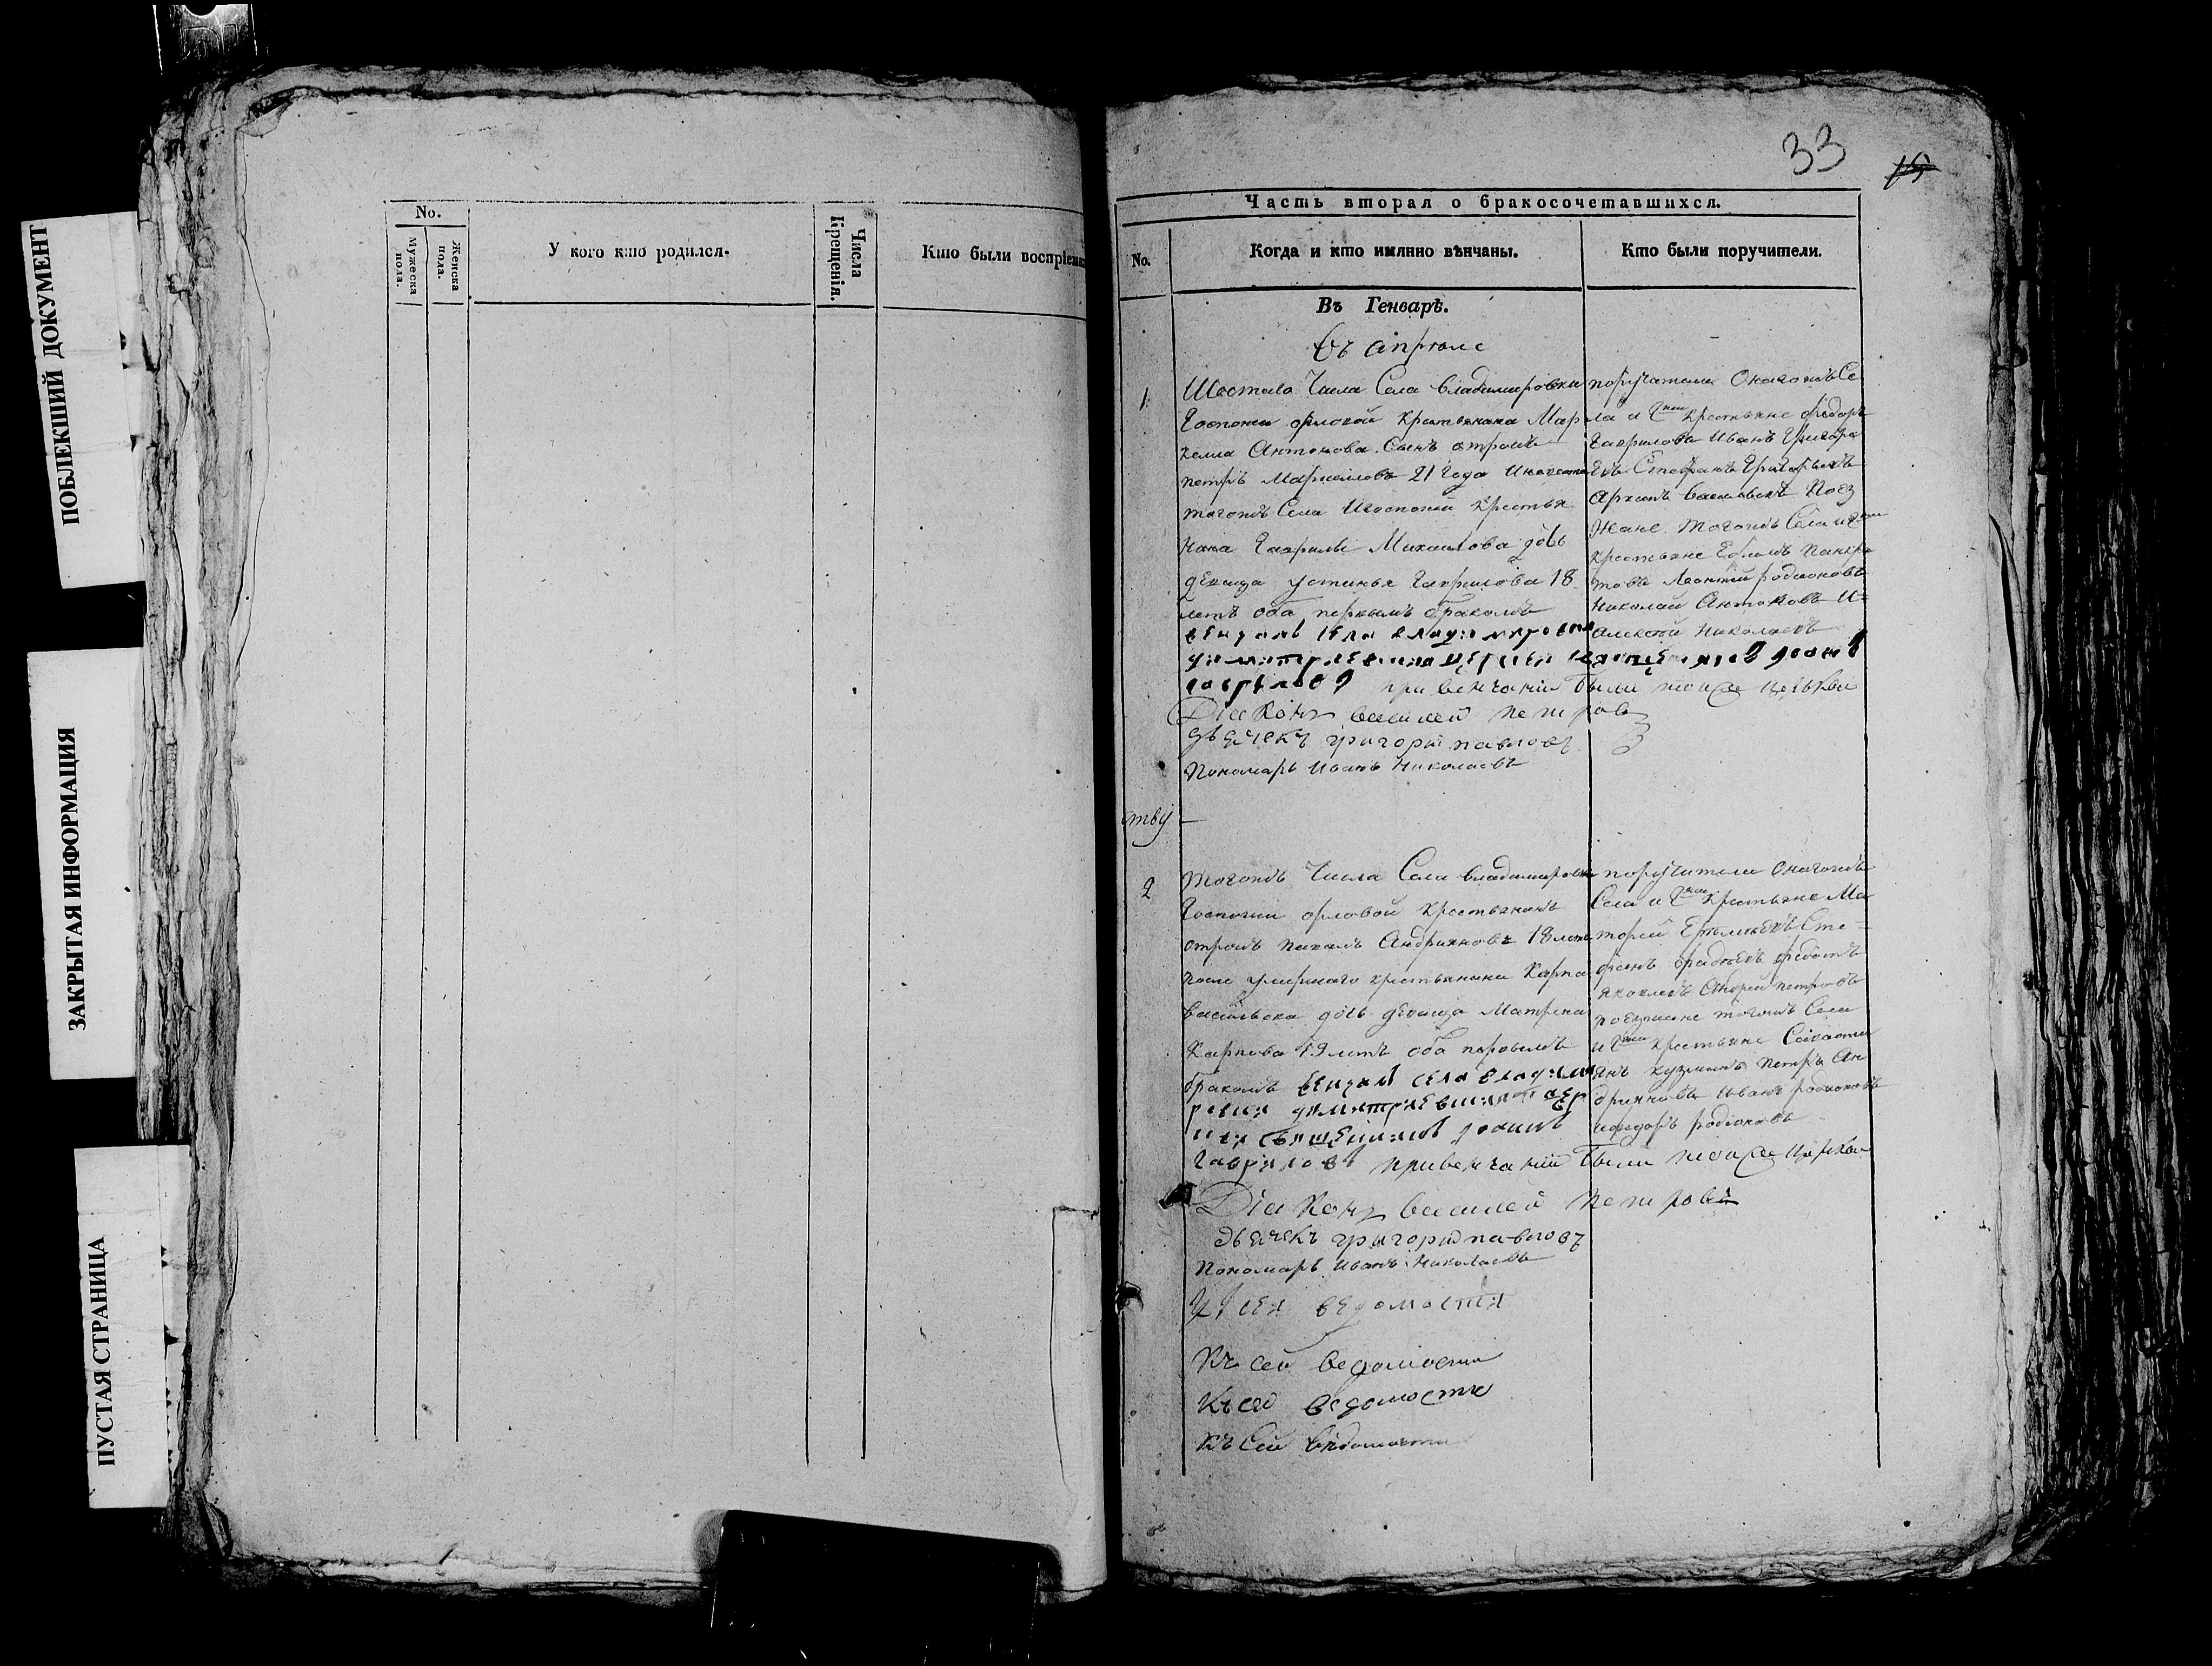 ПОБЛЕКШИЙ ДОКУМЕНТ
ЗАКРЫТАЯ ИНФОРМАЦИЯ
ПУСТАЯ СТРАНИЦА
No.
Мужеска пола.
Женска пола.
У кого кто родился.
Числа Крещенія.
Кто были воспріемн
33
Часть вторая о бракосочетавшихся.
No.
Когда и кто имянно вѣнчаны.
Кто были поручители.
Въ Генварѣ.
Въ апреле
1
Шестаго Числа Села Владимировки
Госпожи орловой Крестьянина Мар
келла Антонова Сынъ отрокъ
петръ Маркеловъ 21 Года
тогожъ Села Игоспожи Крестья
нина Гаврилы Михаилова дочь
девица устинья Гаврилова 18
летъ оба первымъ бракомъ
венчалъ села владимировки
димитриевской церкви священникъ
гавриловъ при венчании были тоя же церькви
Діаконъ василей петровъ
дьячекъ григорій павловъ
Пономарь Иванъ Николаевъ
поручители Онагожъ Се
ла и Крестьяне федоръ
Гавриловъ Иванъ Григорь
евъ Стефанъ Григорьевъ
Архипъ Васильевъ Поез
жане тогожъ Села и
крестьяне Ефимъ Панкра
товъ Леонтий родионовъ
Николай Антоновъ И
Алексей Николаевъ
тву
2
Тогожъ Числа Села владимировки
Госпожи орловой Крестьянинъ
отрокъ Андрияновъ 18 летъ
после умершаго крестьянина Карпа
Васильева дочь девица Матрена
Карпова 19 летъ оба первымъ
бракомъ венчалъ села владими
ровки димитриевской цер
кви священникъ
гавриловъ при венчании были тоя же церькви
Діаконъ василей петровъ
дьячекъ григорій павловъ
Пономарь Иванъ Николаевъ
поручители Онагожъ
Села и Крестьяне
Яковлевъ Андрей петровъ
поезжане тогожъ Села
и крестьяне Савасти
янъ кузминъ Петръ Ан
дрияновъ Иванъ родионовъ
родионовъ
Къ сей ведомости
Къ сей ведомости
Къ сей ведомости
Къ Сей ведомости